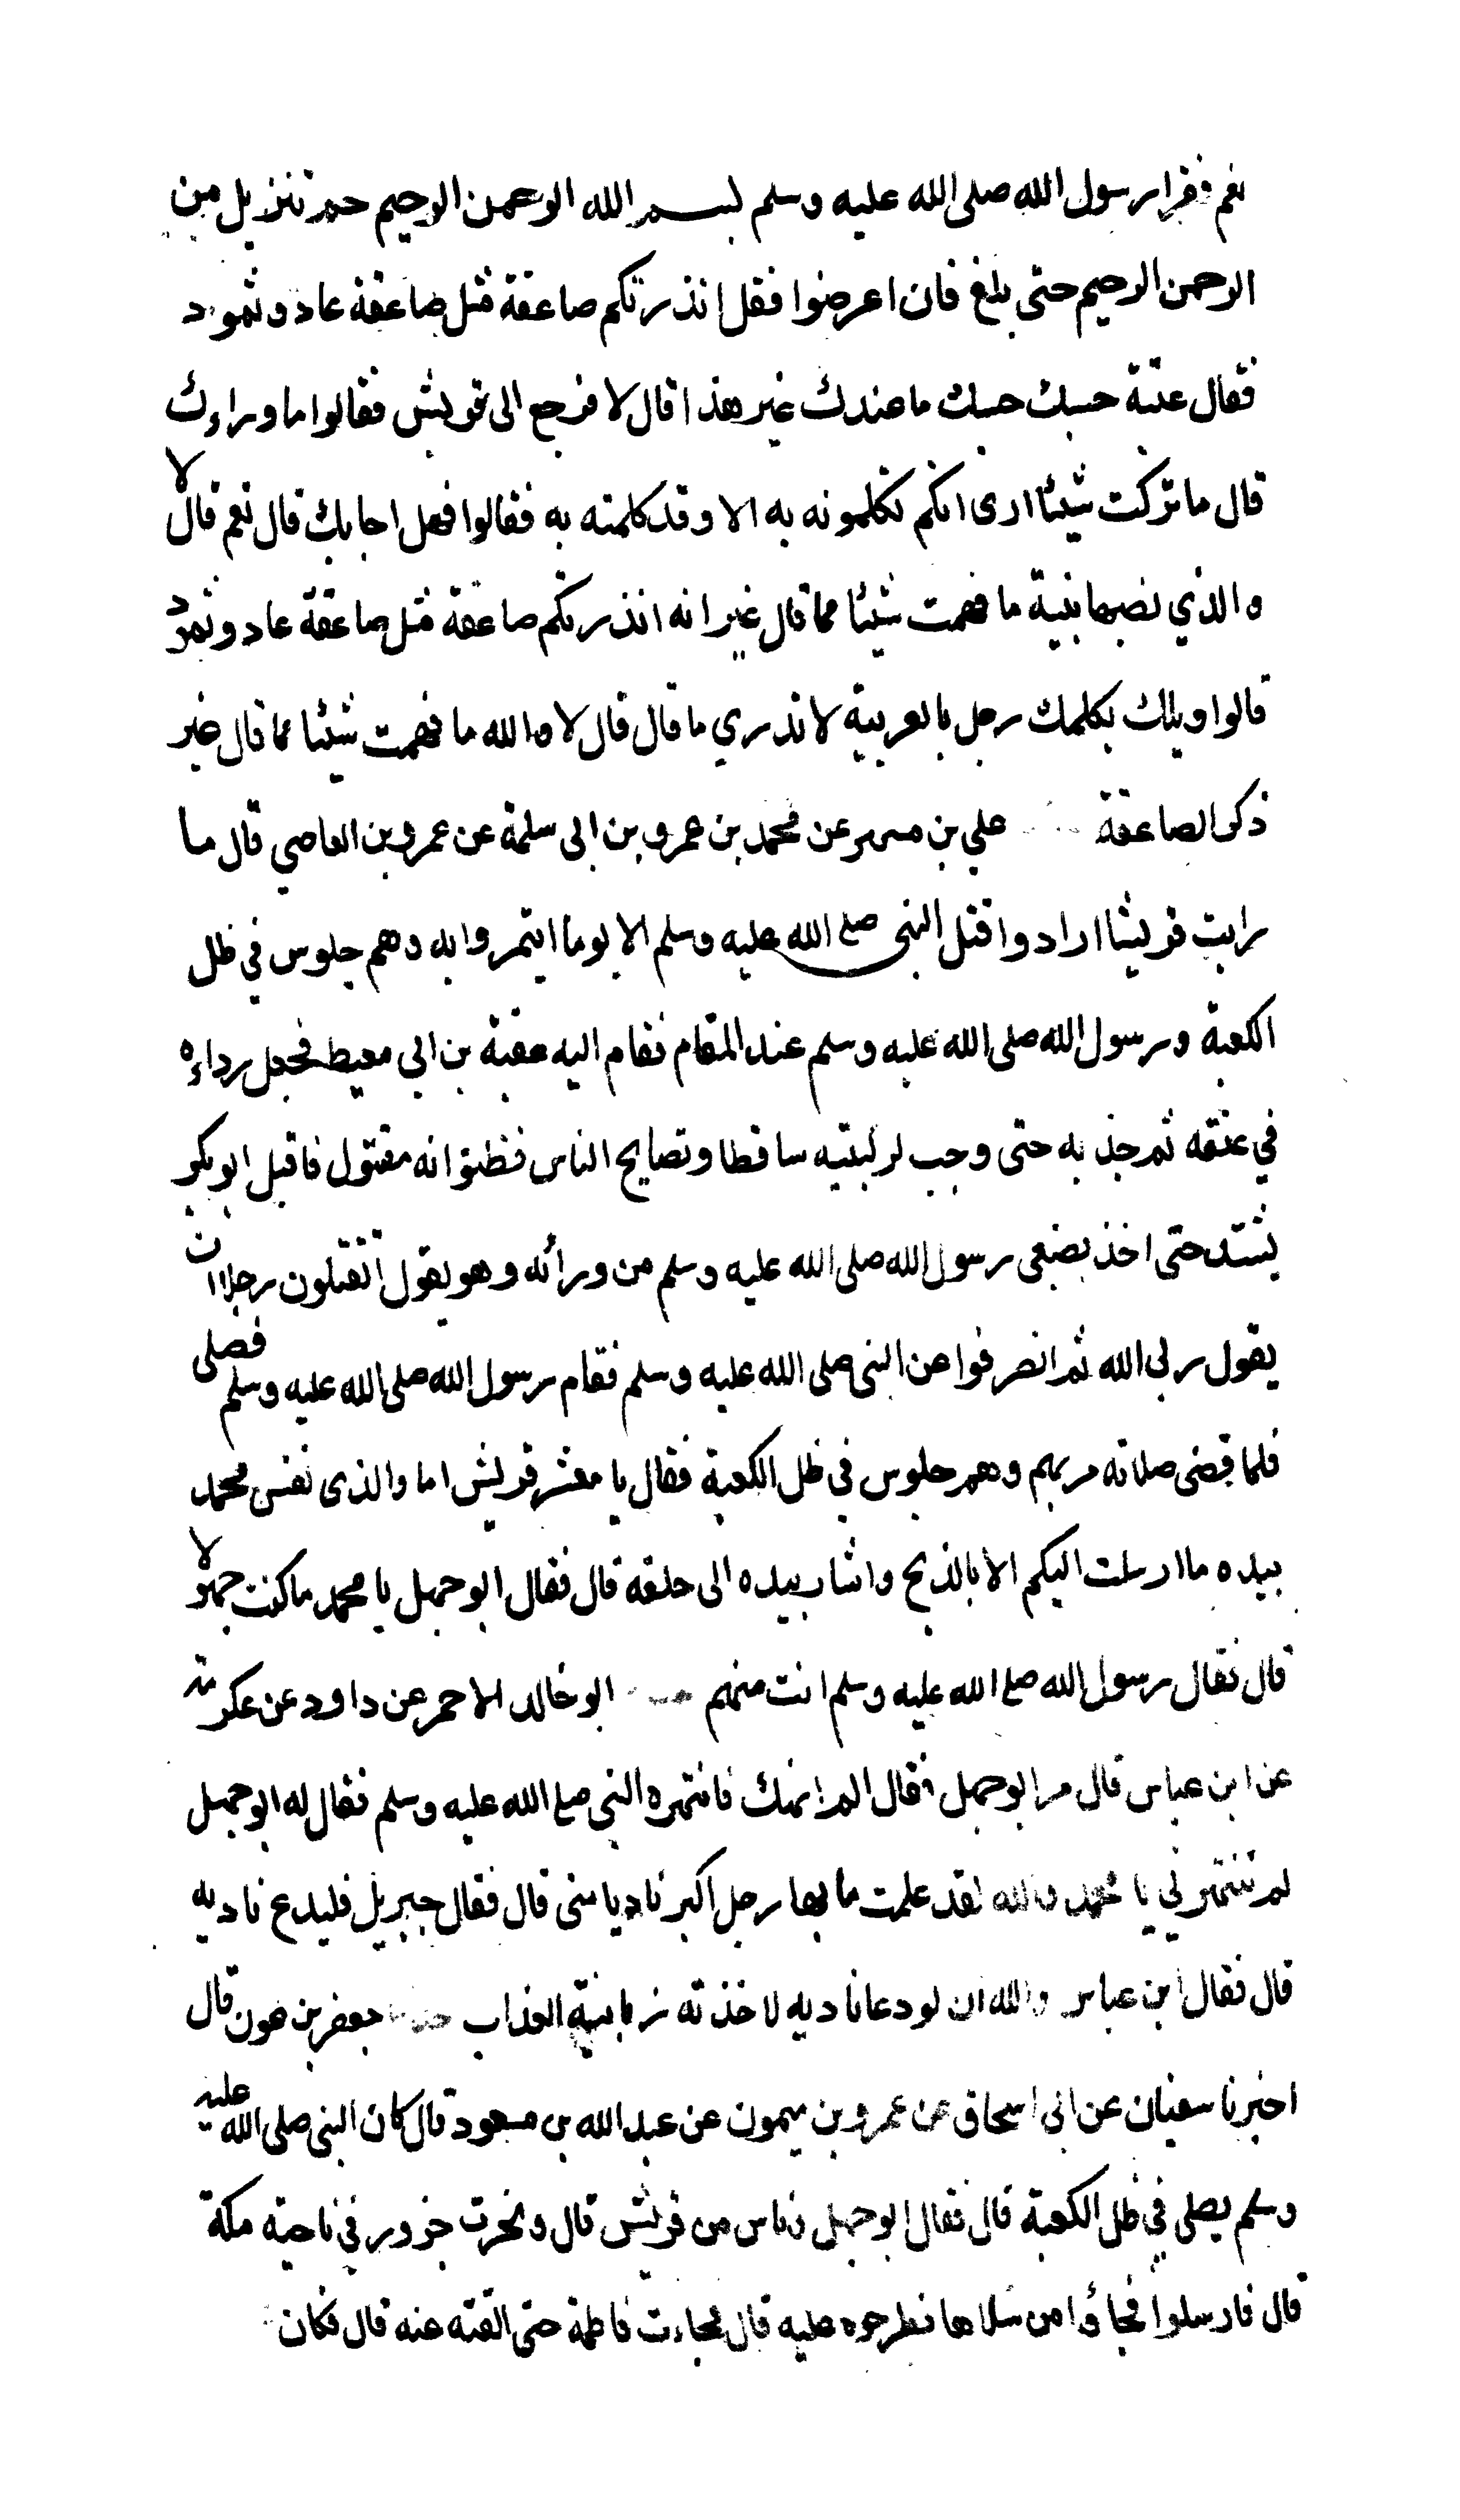 نعم فقرا رسول الله صلى الله عليه وسلم بسم الله الرحمن الرحيم حم تنزيل من
الرحمن الرحيم حتى بلغ فان اعرضوا فقل انذرتكم صاعقة مثل صاعقة عاد وثمود
فقال عتبة حسبك حسبك ما عندك غير هذا قال لا فرجع الى قريش فقالوا ما وراءك
قال ما تركت شيئا ارى انكم تكلمونه به الا وقد كلمته به فقالوا فهل اجابك قال نعم قال لا
والذي نصبها بنية ما فهمت شيئا مما قال غير انه انذركم صاعقة مثل صاعقة عاد وثمود
قالوا ويلك يكلمك رجل بالعربية لا تدري ما قال قال لا والله ما فهمت شيئا مما قال غير
ذكر الصاعقة علي بن مسهر عن محمد بن عمرو بن ابى سلمة عن عمرو بن العاصي قال ما
رايت قريشا ارادوا قتل النبي صلى الله عليه وسلم الا يوما ايتمروا به وهم جلوس في ظل
الكعبة ورسول الله صلى الله عليه وسلم عند المقام فقام اليه عقبة بن ابي معيط فجعل رداءه
في عنقه ثم جذبه حتى وجب لركبتيه ساقطا وتصايح الناس فظنوا انه مقتول فاقبل ابو بكر
يشتد حتى اخذ بضبعى رسول الله صلى الله عليه وسلم من ورائه وهو يقول اتقتلون رجلا ان
يقول ربى الله ثم انصرفوا عن النبي صلى الله عليه وسلم فقام رسول الله صلى الله عليه وسلم فصلى
فلما قضى صلاته مر بهم وهم جلوس في ظل الكعبة فقال يا معشر قريش اما والذى نفس محمد
بيده ما ارسلت اليكم الا بالذبح واشار بيده الى حلقه قال فقال ابو جهل يا محمد ما كنت جهولا
قال فقال رسول الله صلى الله عليه وسلم انت منهم ابو خالد الاحمر عن داود عن عكرمة
عن ابن عباس قال مر ابو جهل فقال الم انهك فانتهره النبي صلى الله عليه وسلم فقال له ابو جهل
لم تنتهرني يا محمد والله لقد علمت ما بها رجل اكبر ناديا منى قال فقال جبريل فليدع ناديه
قال فقال ابن عباس والله ان لو دعا ناديه لاخذته زبانية العذاب جعفر بن عون قال
اخبرنا سفيان عن ابى اسحاق عن عمرو بن ميمون عن عبد الله بن مسعود قال كان النبي صلى الله عليه
وسلم يصلى في ظل الكعبة قال فقال ابو جهل وناس من قريش قال ونحرت جزور في ناحية مكة
قال فارسلوا فجاؤا من سلاها فطرحوه عليه قال فجاءت فاطمة حتى القته عنه قال فكان